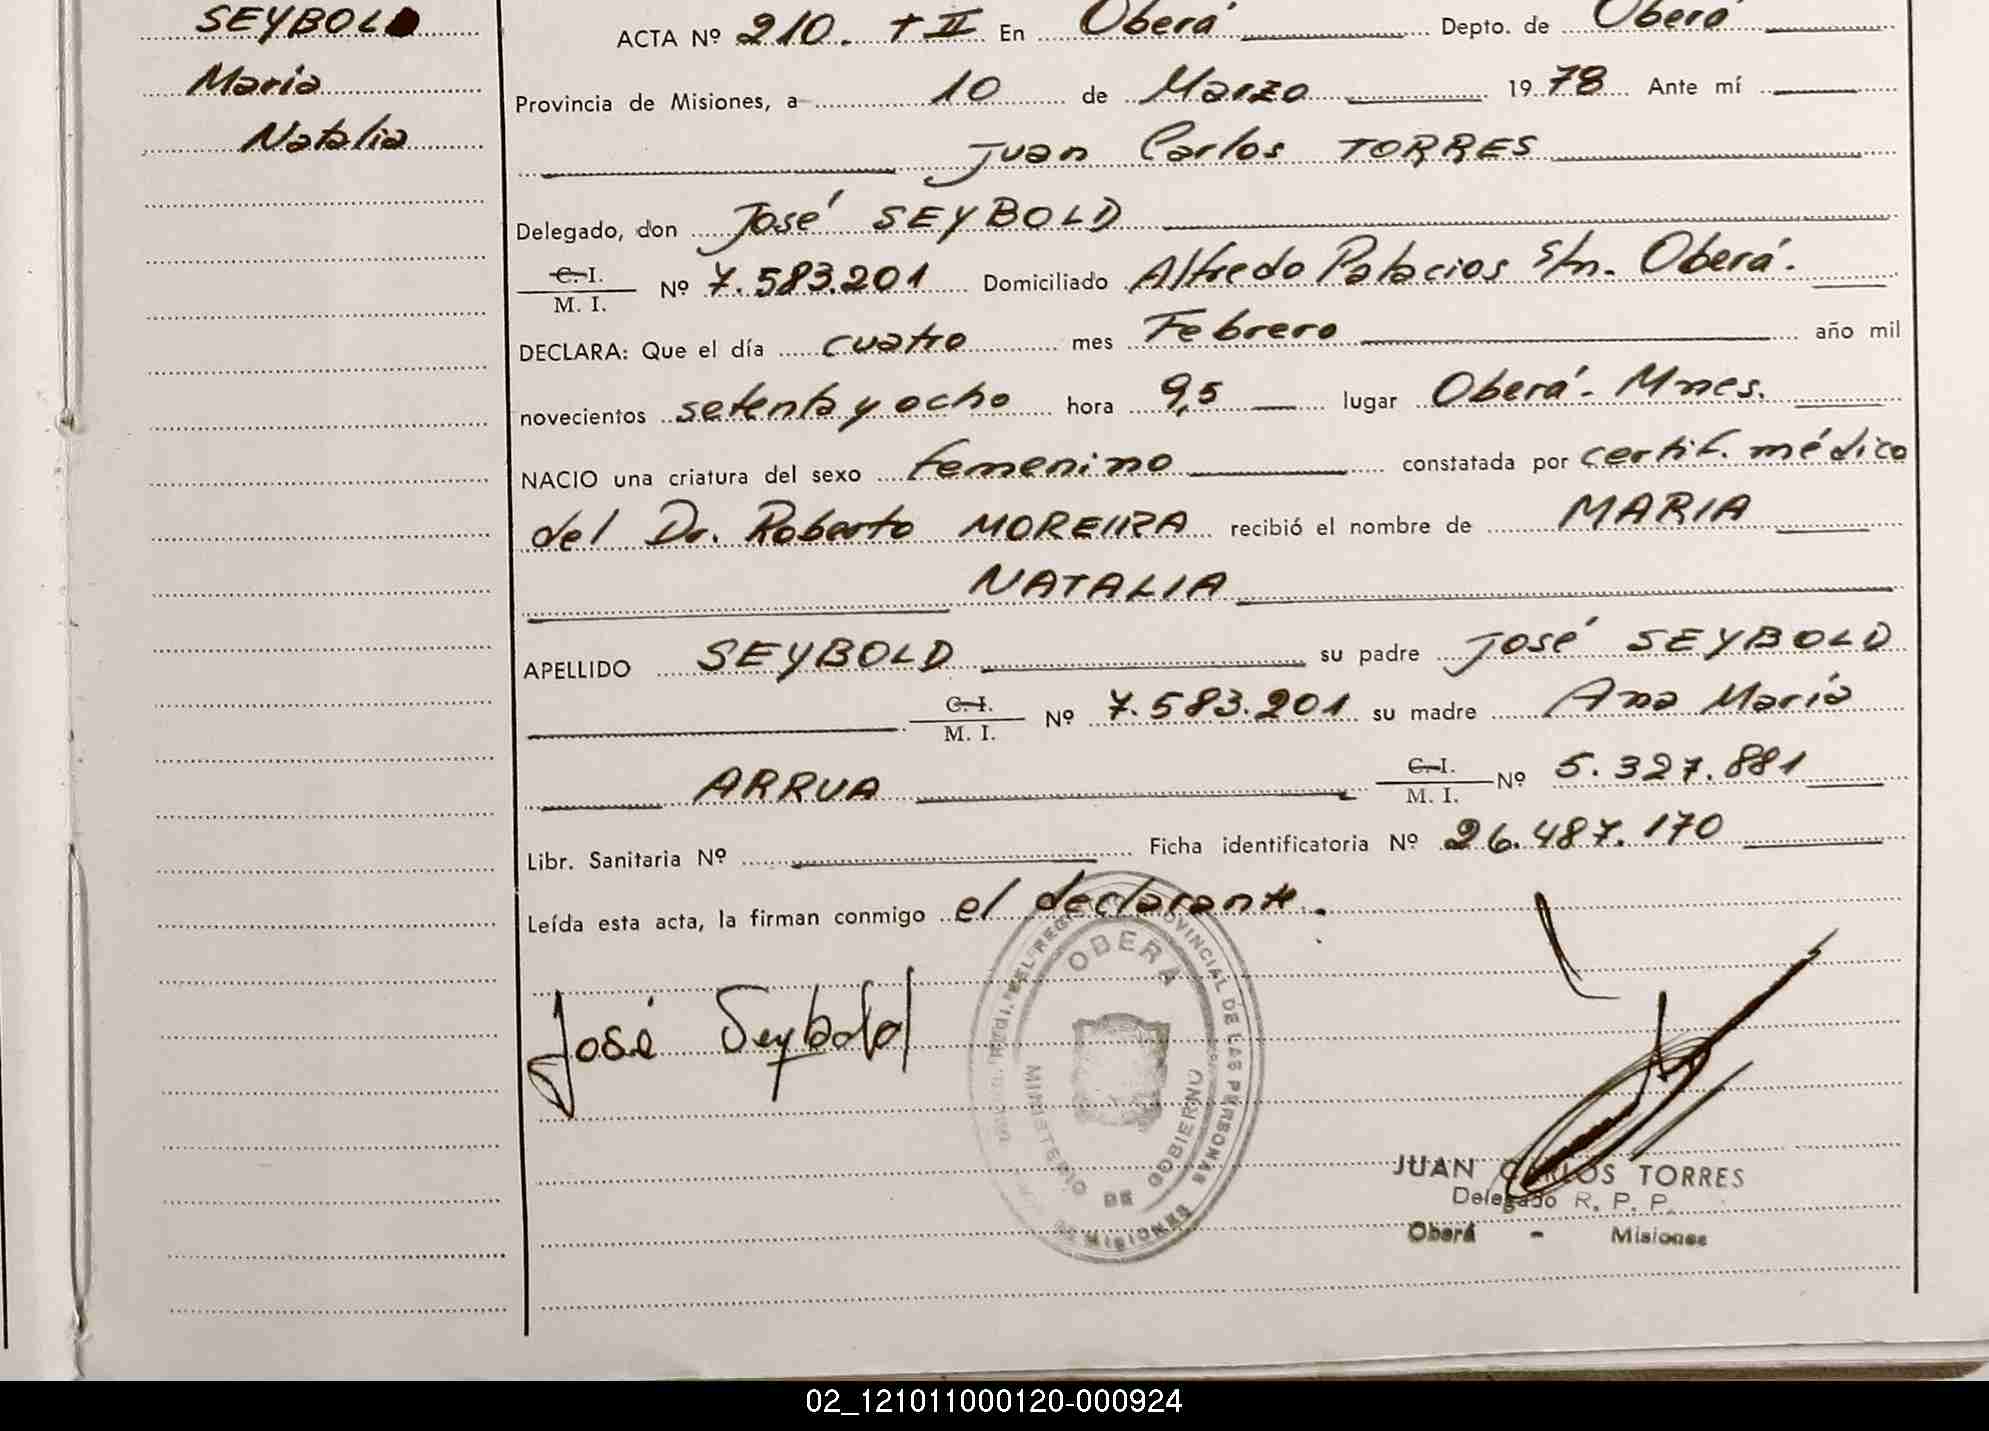 SEYBOLD
Maria
Natalia
ACTA Nº 210. T II En Oberá Depto. de Oberá
Provincia de Misiones, a 10 de Marzo 1978 Ante mí
Juan Carlos TORRES
Delegado, don José SEYBOLD
C. I.
M. I. Nº 7.583.201 Domiciliado Alfredo Palacios s/n. Oberá.
DECLARA: Que el día cuatro mes Febrero año mil
novecientos setenta y ocho hora 9,5 lugar Oberá. Mnes.
NACIO una criatura del sexo femenino constatada por certif. médico
del Dr. Roberto MOREIRA recibió el nombre de MARIA
NATALIA
APELLIDO SEYBOLD su padre José SEYBOLD
C. I.
M. I. Nº 7.583.201 su madre Ana Maria
ARRUA C. I.
M. I. Nº 5.327.881
Libr. Sanitaria Nº Ficha identificatoria Nº 26.487.170
Leída esta acta, la firman conmigo el declarante.
José Seybold
OBERA
PROVINCIAL DE LAS PERSONAS
MINISTERIO DE GOBIERNO
MISIONES
JUAN CARLOS TORRES
Delegado R. P. P.
Oberá - Misiones
02_121011000120-000924